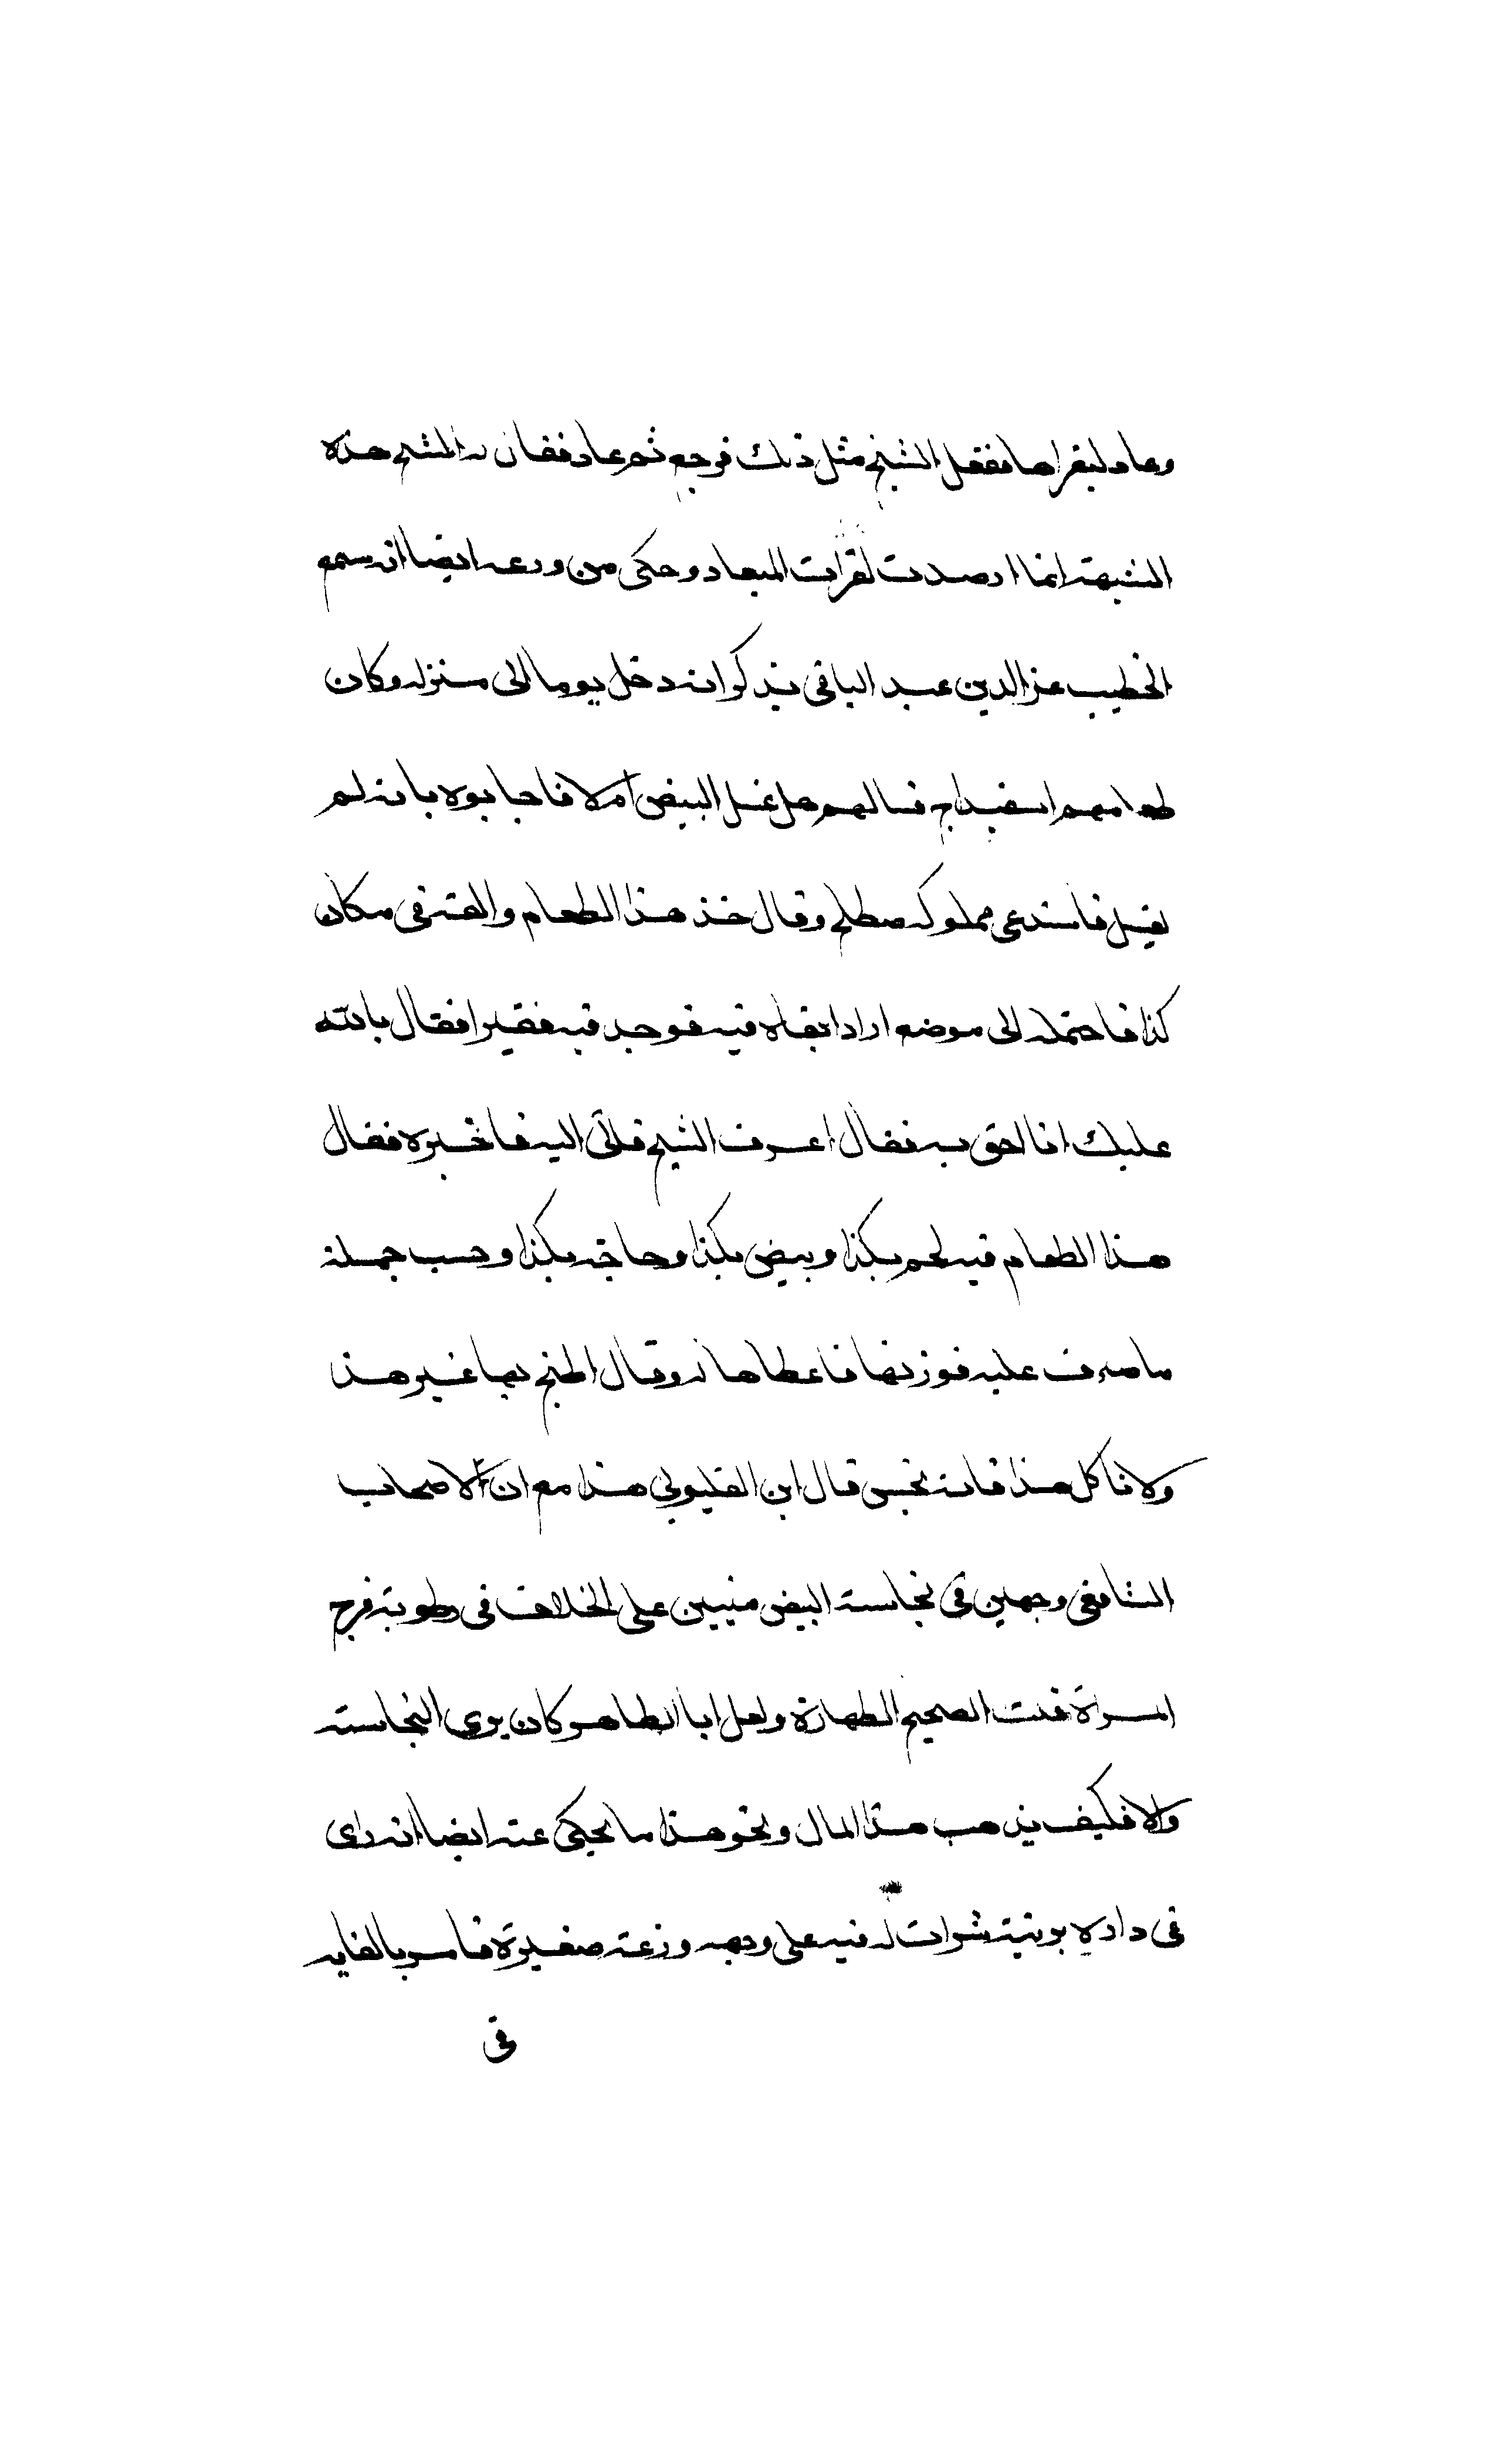 وعاد ليقراها ففعل الشيخ مثل ذلك فرجع ثم عاد فقال له الشيخ هذه
الشبهة انما ارصدت لقرات الميعاد وحكى من ورعه ايضا انه سمع
الخطيب عز الدين عبد الباقي يذكر انه دخل يوما الى منزله وكان
طعامهم اسفيداج فسالهم هل غسل البيض ام لا فاجابوه بانه لم
يغسل فاستدعى مملوكه صطلح وقال خذ هذا الطعام والقه في مكان
كذا فاحتمله الى موضع اراد ابقاه فيه فوجد فيه فقيرا فقال بالله
عليك انا احق به فقال اعرف الشيخ فاتى اليه فاخبره فقال
هذا الطعام فيه لحم بكذا وبيض بكذا وحاجة بكذا وحسب جملة
ما صرف عليه فوزنها فاعطاها له وقال اطبخ بها غير هذا
ولا تاكل هذا فانه نجس قال ابن القليوبي هذا مع ان لاصحاب
الشافعي وجهين في نجاسة البيض مبنيين على الخلاف في رطوبة فرج
المراة قلت الصحيح الطهارة ولعل ابا الطاهر كان يرى النجاسة
والا فكيف يذهب هذا المال ونحو هذا ما يحكى عنه ايضا انه راى
في داره برنية شراب له فيه على وجهه وزغة صغيرة فامر بالقايه
في